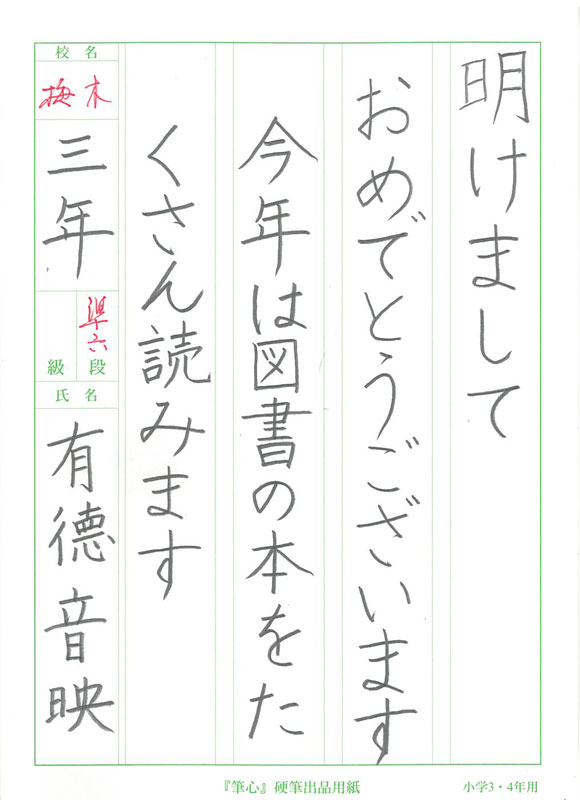 明けまして
おめでとうございます
今年は図書の本をた
くさん読みます
校名
梅木
三年
準六
級段
氏名
有德音映
『筆心』硬筆出品用紙
小学3・4年用